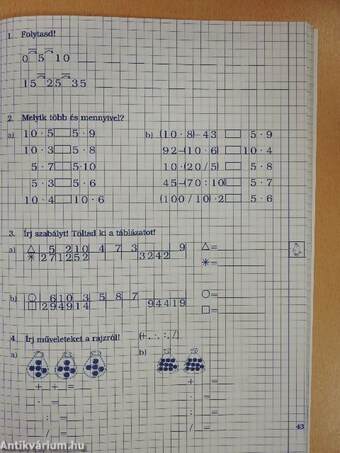 1. Folytasd!
0 5 10
15 25 35
2. Melyik több és mennyivel?
a) 10 · 5 5 · 9 b) (10 · 8) – 43 5 · 9
10 · 3 5 · 8 92 – (10 · 6) 10 · 4
5 · 7 5 · 10 10 · (20 / 5) 5 · 8
5 · 3 5 · 6 45 – (70 : 10) 5 · 7
10 · 4 10 · 6 (100 / 10) · 2 5 · 6
3. Írj szabályt! Töltsd ki a táblázatot!
a) △ 5 2 10 4 7 3 9 △ =
✳ 27 12 52 32 42 ✳ =
b) ○ 6 10 3 5 8 7 ○ =
□ 29 49 14 94 4 19 □ =
4. Írj műveleteket a rajzról! (+, –, ·, :, /)
a) b)
+ + = + =
· = · =
: = : =
/ = / =
43
Antikvárium.hu